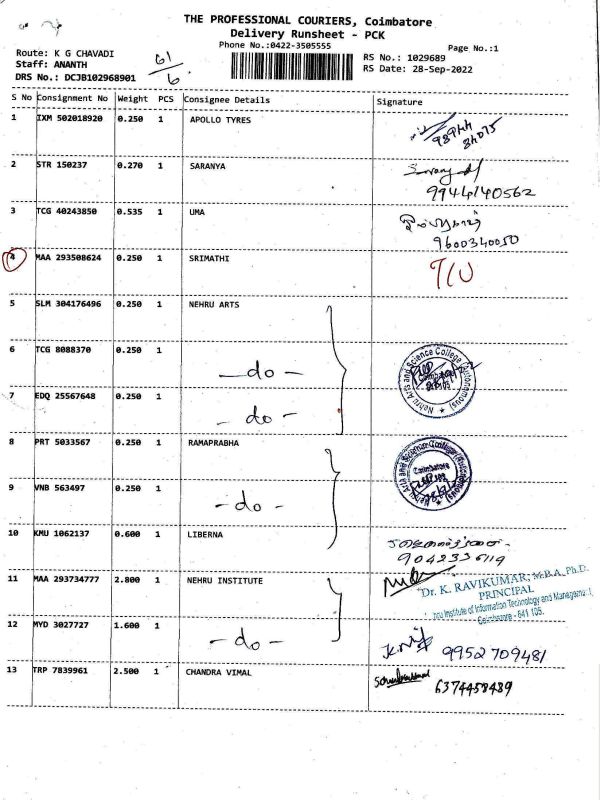 THE PROFESSIONAL COURIERS, Coimbatore
Delivery Runsheet - PCK
Phone No.:0422-3505555
Page No.:1
Route: K G CHAVADI
Staff: ANANTH
DRS No.: DCJB102968901
61/6
RS No.: 1029689
RS Date: 28-Sep-2022
S No Consignment No Weight PCS Consignee Details Signature
1 IXM 502018920 0.250 1 APOLLO TYRES
2 STR 150237 0.270 1 SARANYA
9944140562
3 TCG 40243850 0.535 1 UMA
9600340050
4 MAA 293508624 0.250 1 SRIMATHI
5 SLM 304176496 0.250 1 NEHRU ARTS
6 TCG 8088370 0.250 1 -do-
Nehru Arts and Science College (Autonomous)
Coimbatore
7 EDQ 25567648 0.250 1 -do-
8 PRT 5033567 0.250 1 RAMAPRABHA
Nehru Arts and Science College (Autonomous)
Coimbatore
9 VNB 563497 0.250 1 -do-
10 KMU 1062137 0.600 1 LIBERNA
11 MAA 293734777 2.800 1 NEHRU INSTITUTE
Dr. K. RAVIKUMAR, M.B.A., Ph.D.
PRINCIPAL
Institute of Information Technology and
Coimbatore - 641 105.
12 MYD 3027727 1.600 1 -do-
9952709481
13 TRP 7839961 2.500 1 CHANDRA VIMAL
6374458489